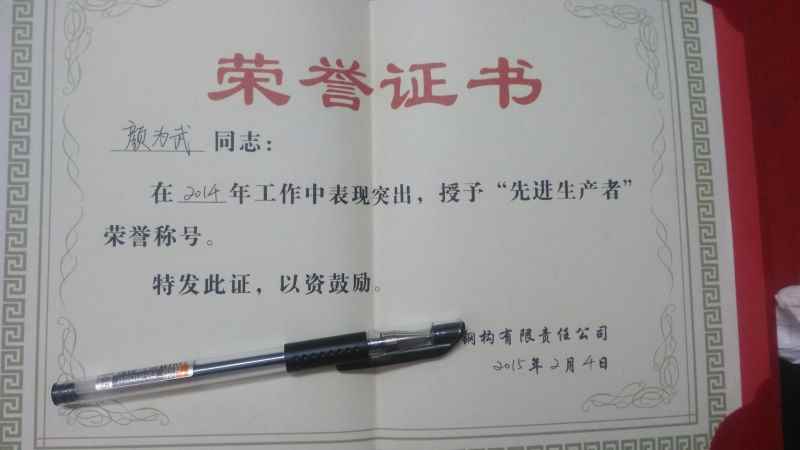 荣誉证书
颜为武 同志：
在2014年工作中表现突出，授予“先进生产者”
荣誉称号。
特发此证，以资鼓励。
钢构有限责任公司
2015年2月4日